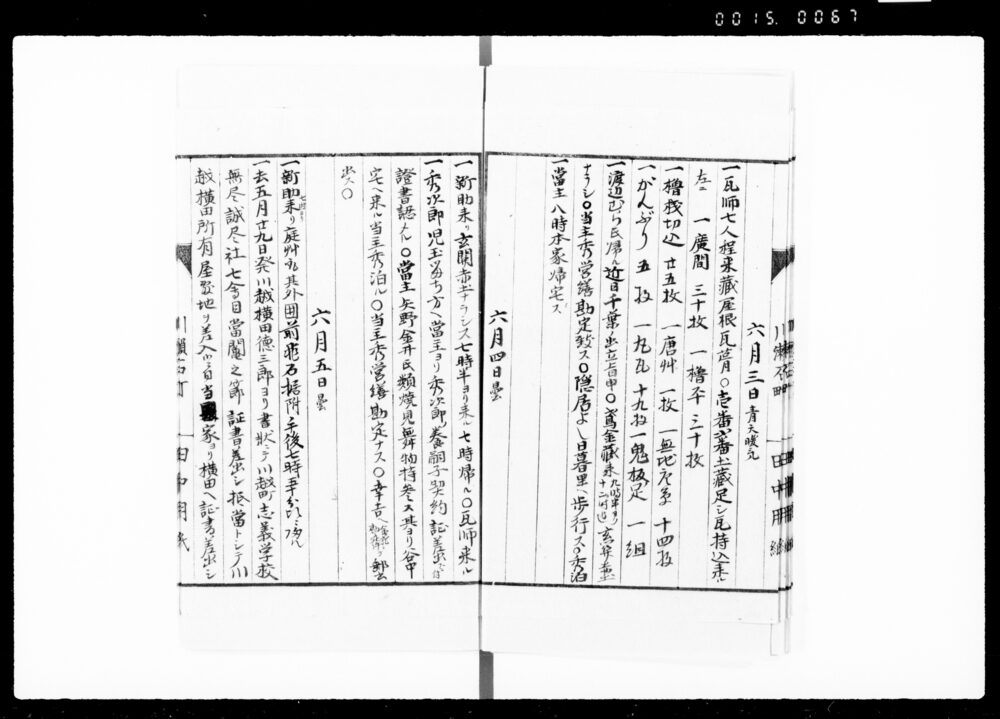 0015.0067
六月三日 青天暖気
一瓦師七人程来蔵屋根瓦葺〇壱番弐番土蔵足シ瓦持込来ル
左ニ 一廣間 三十枚 一櫓平 三十枚
一櫓棧切込 廿五枚 一唐艸 一枚 一無地唐草 十四枚
一がんぶり 五枚 一丸瓦 十九枚 一鬼板足 一組
一渡辺むら氏帰ル近日千葉出立旨申〇鳶金蔵来九時半ヨリ十二時迄玄関
ナラシ〇当主秀営繕勘定致ス〇隠居よし日暮里ヘ歩行ス〇秀泊
一當主八時本家帰宅ス
六月四日 曇
一新助来リ玄関赤土ナラシス七時半ヨリ来ル七時帰ル〇瓦師来ル
一秀次郎児玉みち方ヘ當主ヨリ秀次郎養嗣子契約証差出
證書認メル〇當主矢野金井氏類焼見舞物持参ス其ヨリ谷中
宅ヘ来ル当主秀泊ル〇当主秀営繕勘定ナス〇幸吉
ス〇
六月五日 曇
一新助来リ庭艸其外田前飛石据附午後七時半
一去五月廿九日発川越横田徳三郎ヨリ書状ニテ川越町志義学校
無尽誠尽社七会目當鬮之節証書差出シ抵當トシテ川
越横田所有屋敷地ヲ差入当家ヨリ横田ヘ証書差出シ
川瀬石町
田中用紙